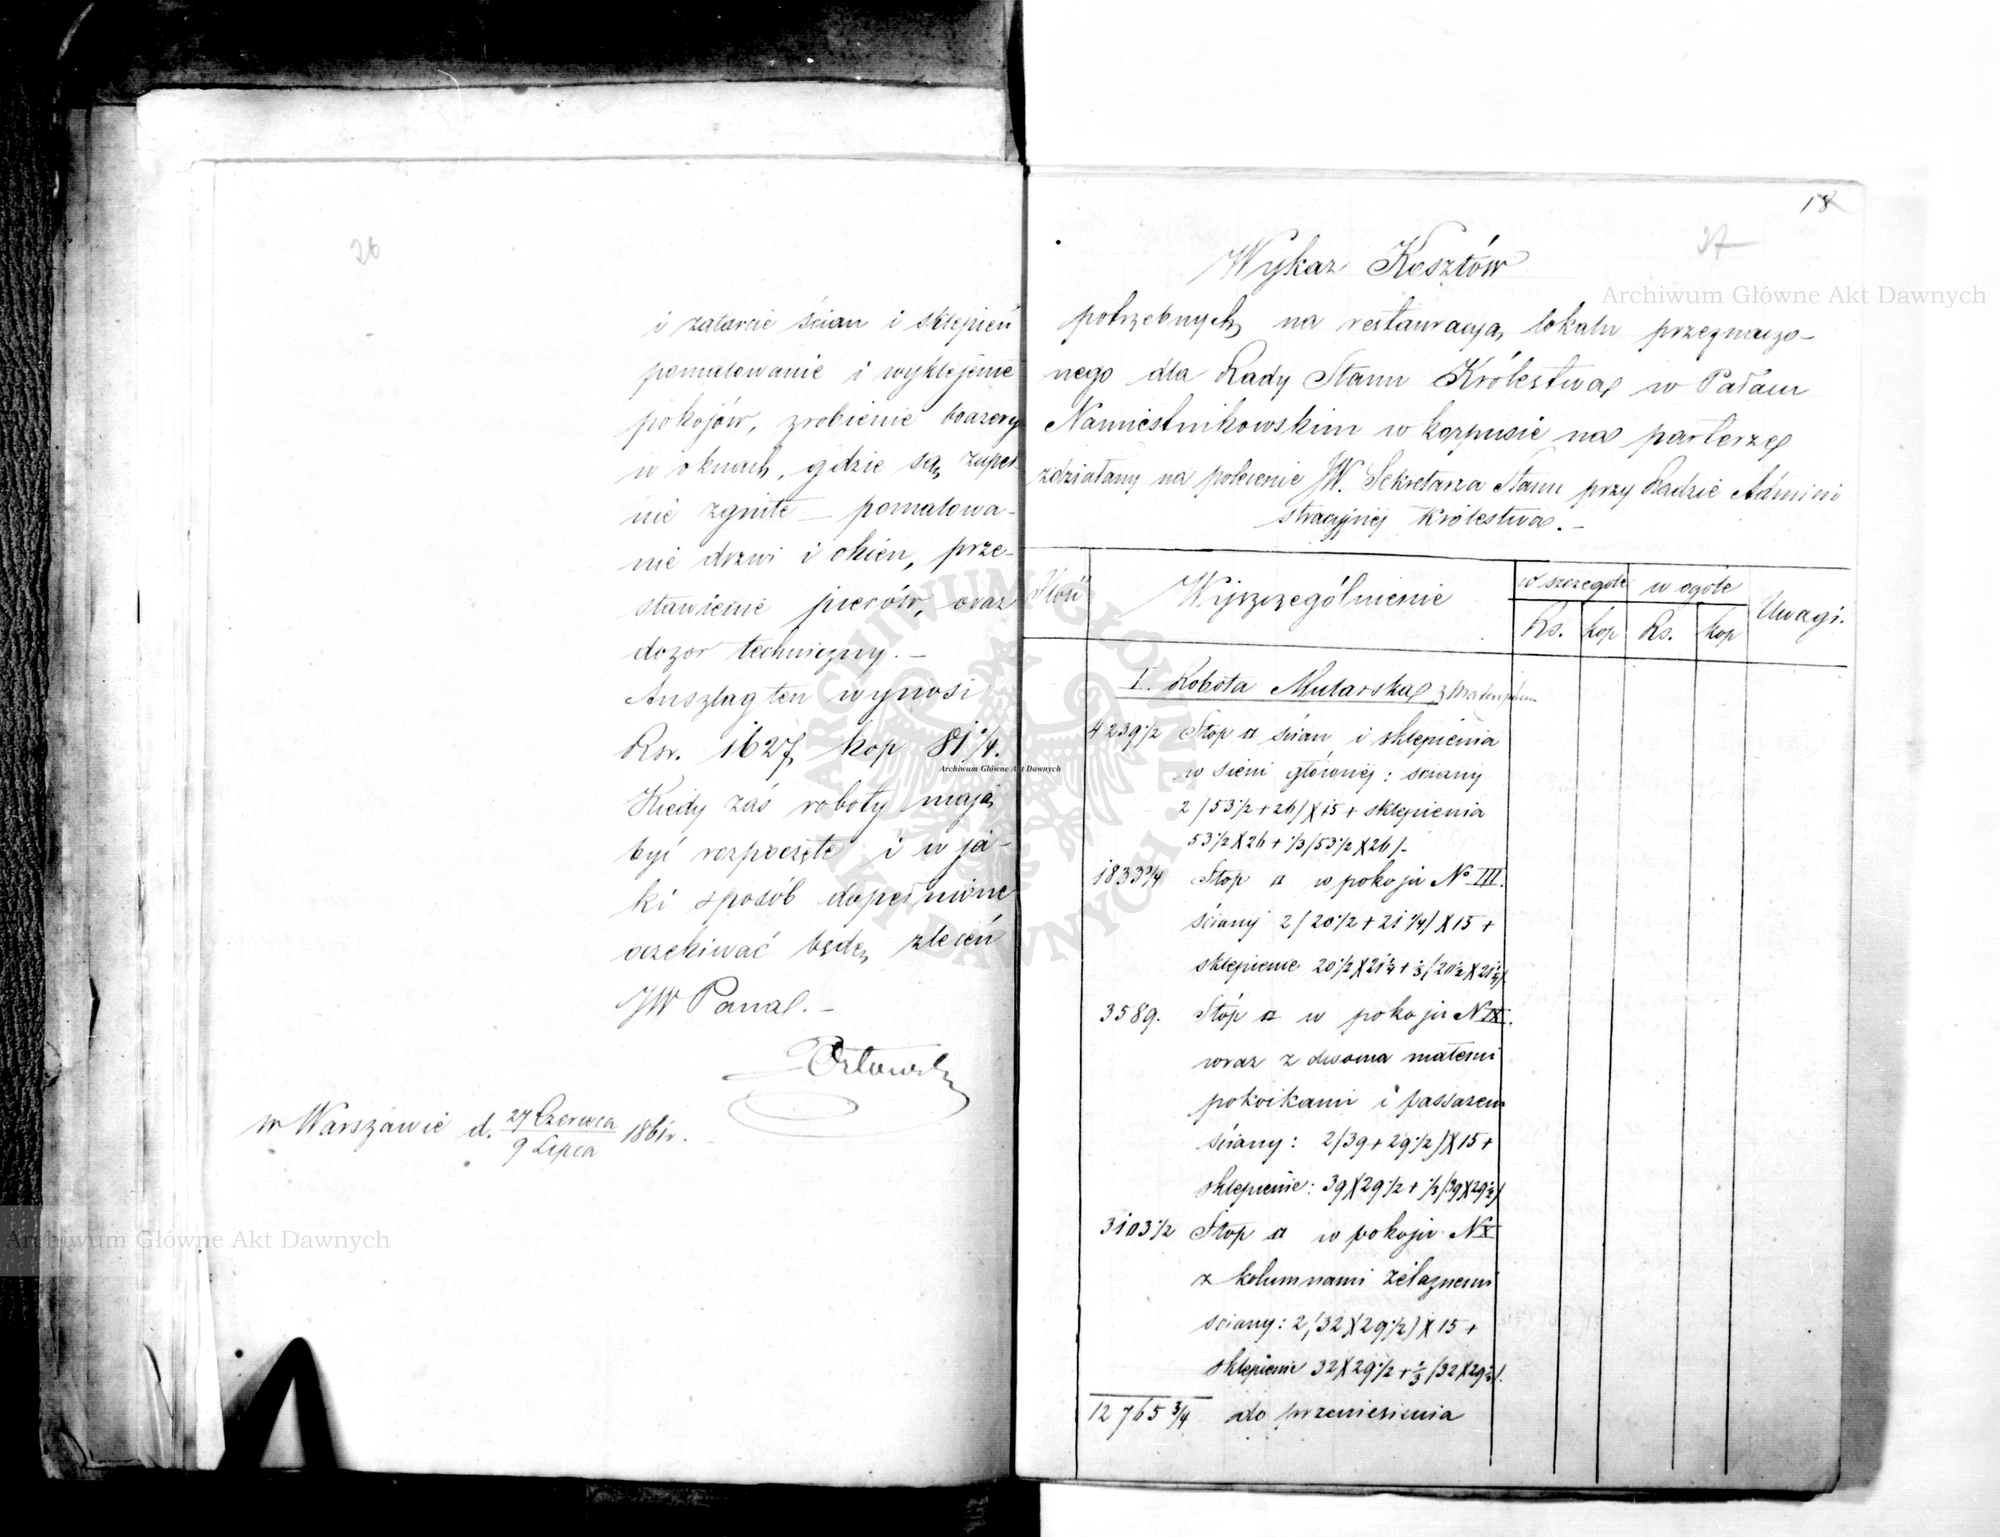 26
i zatarcie ścian i sklepień
pomalowanie i wyklejenie
pokojów, zrobienie boazery
w oknach, gdzie są, zupeł-
nie zgniłe — pomalowa-
nie drzwi i okien, prze-
stawienie pieców, oraz
dozor techniczny. —
Anszlag ten wynosi
Rsr. 1627, kop 81 1/4.
Kiedy zaś roboty mają
być rozpoczęte i w ja-
ki sposób dopełnione
oczekiwać będę, zleceń
JW Pana. —
Orłowski
w Warszawie d. 27 Czerwca / 9 Lipca 1861 r.
18
27
Wykaz Kosztów
potrzebnych na restauracyą lokalu przeznaczo-
nego dla Rady Stanu Królestwa w Pałacu
Namiestnikowskim w korpusie na parterze
zdziałany na polecenie JW. Sekretarza Stanu przy Radzie Admini
stracyjnej Królestwa. —
Ilość
Wyszczególnienie
w szczególe
w ogóle
Uwagi.
Rs. kop Rs. kop
I. Robota Mularska z
4239 1/2 Stop □ ścian i sklepienia
w sieni głównej: ściany
2 (53 1/2 + 26) X 15 + sklepienia
53 1/2 X 26 + 1/3 (53 1/2 X 26) -
1833 3/4 Stop □ w pokoju No III.
ściany 2 (20 1/2 + 21 1/4) X 15 +
sklepienie 20 1/2 X 21 1/4 + 1/3 (20 1/2 X 21 1/4)
3589. Stóp □ w pokoju N IX.
wraz z dwoma małemi
pokoikami i passazem
ściany: 2 (39 + 29 1/2) X 15 +
sklepienie: 39 X 29 1/2 + 1/3 (39 X 29 1/2)
3103 1/2 Stop □ w pokoju N X
z kolumnami żelaznemi
sciany: 2 (32 X 29 1/2) X 15 +
sklepienie 32 X 29 1/2 + 1/3 (32 X 29 1/2).
12765 3/4 do przeniesienia
Archiwum Główne Akt Dawnych
Archiwum Główne Akt Dawnych
Archiwum Główne Akt Dawnych
ARCHIWUM GŁÓWNE AKT DAWNYCH